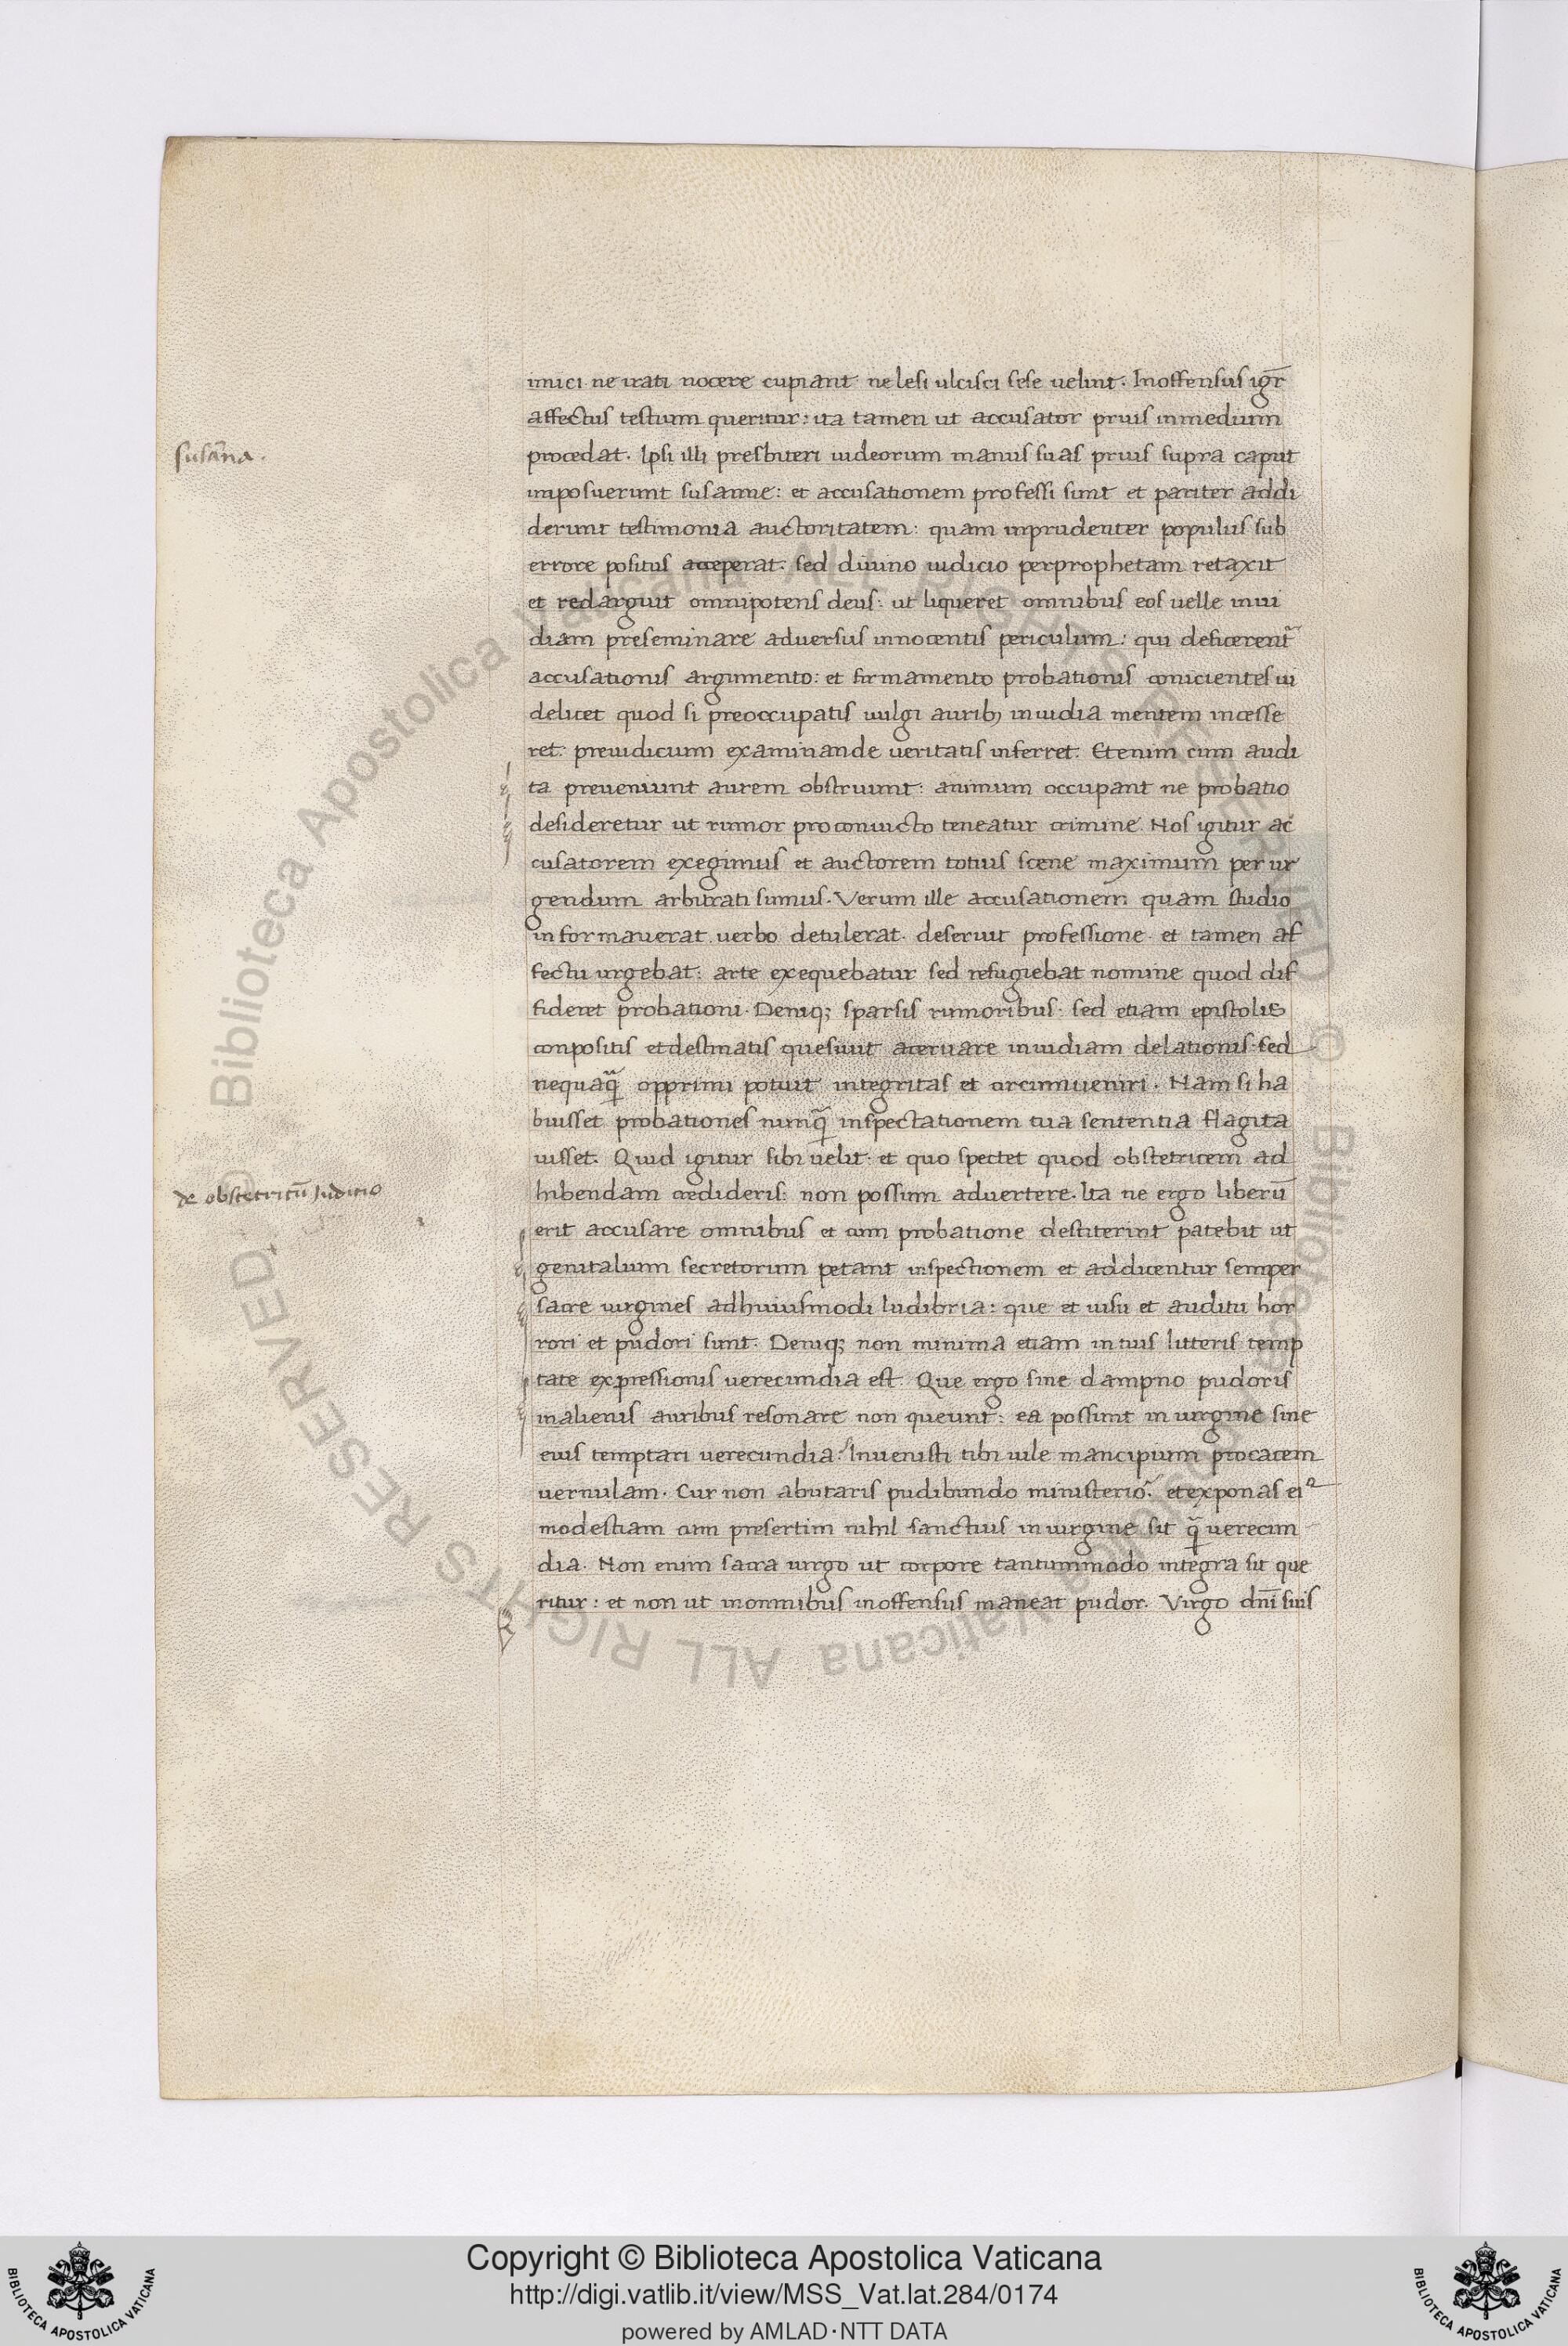 imici ne irati nocere cupiant ne lesi ulcisci sese uelint. Inoffensus igr̄
affectus testium queritur: ita tamen ut accusator prius inmedium
susa̅na.
procedat. Ipsi illi presbiteri iudeorum manus suas prius supra caput
imposuerunt susanne: et accusationem professi sunt et pariter addi
derunt testimonia auctoritatem: quam inprudenter populus sub
errore positus acceperat. sed diuino iudicio perprophetam retaxit
et redarguit omnipotens deus: ut liqueret omnibus eos uelle inui
diam preseminare aduersus innocentis periculum: qui deficerent᷑
accusationis argumento: et firmamento probationis conicientes ui
delicet quod si preoccupatis uulgi aurib; inuidia mentem incesse
ret. preiudicium examinande ueritatis inferret. Etenim cum audi
ta preueniunt aurem obstruunt: animum occupant ne probatio
desideretur ut rumor proconuicto teneatur crimine. Nos igitur ac
cusatorem exegimus et auctorem totius scene maximum per ur
gendum arbitrati sumus. Verum ille accusationem quam studio
informauerat uerbo detulerat. deseruit professione et tamen af
fectu urgebat: arte exequebatur sed refugiebat nomine quod dif
fideret probationi. Deniq; sparsis rumoribus: sed etiam epistolis
conpositis et destinatis quesiuit aceruare inuidiam delationis. sed
nequaq̃ opprimi potuit integritas et circumueniri. Nam si ha
buisset probationes nunq̃ inspectationem tua sententia flagita
uisset. Quid igitur sibi uelit: et quo spectet quod obstetricem ad
de obstetricu̅ Iuditio
hibendam credideris: non possum aduertere. Ita ne ergo liberu̅
erit accusare omnibus et cum probatione destiterint patebit ut
genitalium secretorum petant inspectionem et addicentur semper
sacre uirgines adhuiusmodi ludibria: que et uisu et auditu hor
rori et pudori sunt. Deniq; non minima etiam in tuis litteris temp
tate expressionis uerecundia est. Que ergo sine dampno pudoris
inalienis auribus resonare non queunt: ea possunt in uirgine sine
eius temptari uerecundia. Inuenisti tibi uile mancipium procacem
uernulam. Cur non abutaris pudibundo ministerio. et exponas ei
modestiam cum presertim nihil sanctius in uirgine sit q̃ uerecun
dia. Non enim sacra uirgo ut corpore tantummodo integra sit que
ritur: et non ut inomnibus inoffensus maneat pudor. Virgo dn̅i suis
Copyright © Biblioteca Apostolica Vaticana
http://digi.vatlib.it/view/MSS_Vat.lat.284/0174
powered by AMLAD·NTT DATA